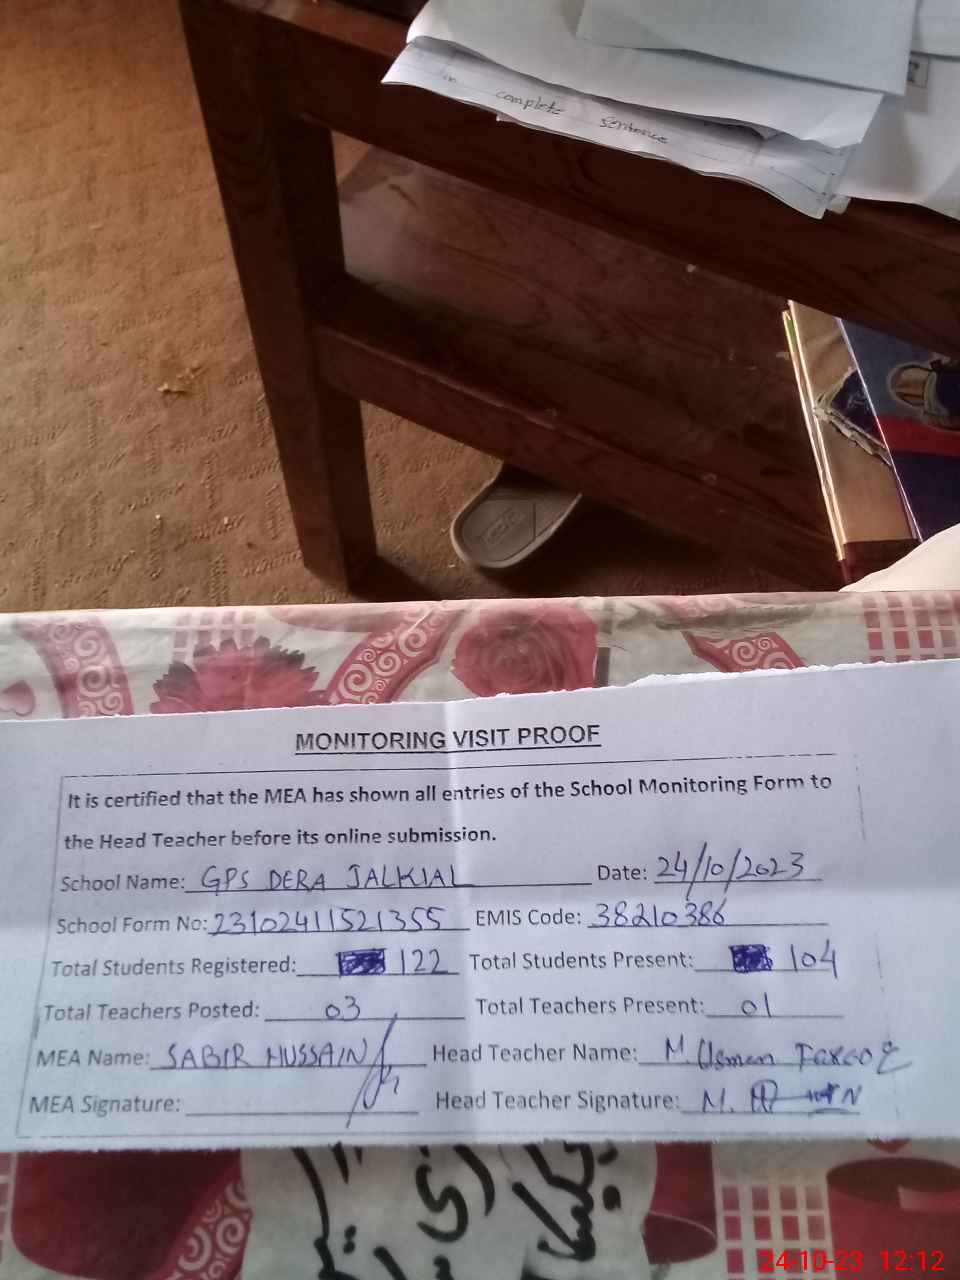 complete sentence
MONITORING VISIT PROOF
It is certified that the MEA has shown all entries of the School Monitoring Form to
the Head Teacher before its online submission.
School Name: GPS DERA JALKIAL Date: 24/10/2023
School Form No: 23102411521355 EMIS Code: 38210386
Total Students Registered: 122 Total Students Present: 104
Total Teachers Posted: 03 Total Teachers Present: 01
MEA Name: SABIR HUSSAIN Head Teacher Name: M. Usman
MEA Signature: Head Teacher Signature: M.
24-10-23 12:12